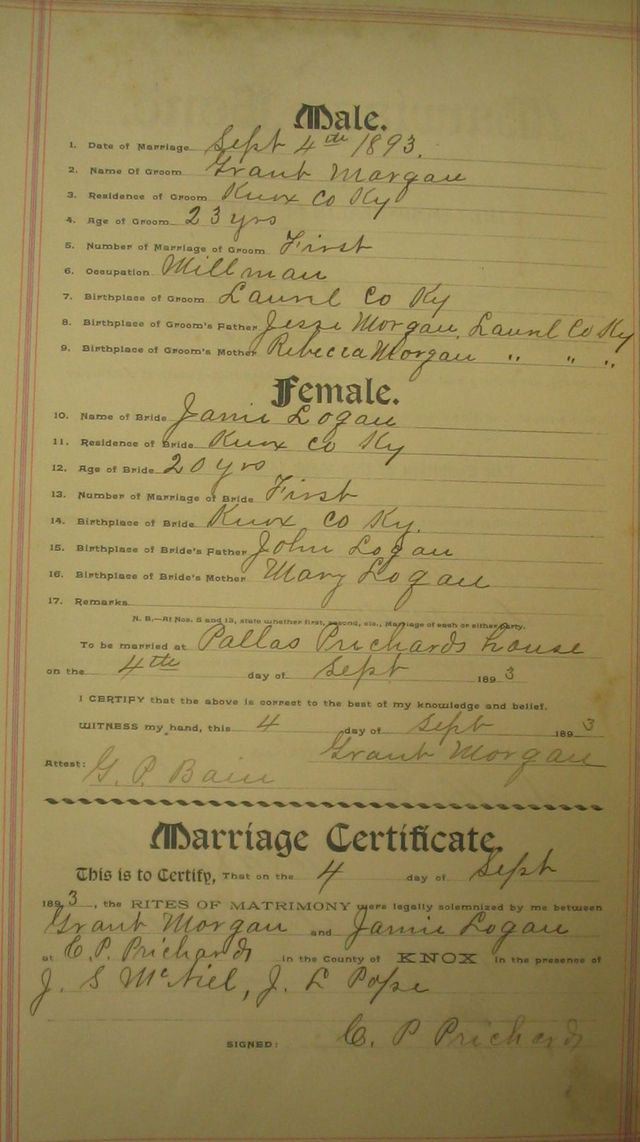 Male.
1. Date of Marriage Sept 4th 1893.
2. Name Of Groom Grant Morgan
3. Residence of Groom Knox Co Ky
4. Age of Groom 23 yrs
5. Number of Marriage of Groom First
6. Occupation Millman
7. Birthplace of Groom Laurel Co Ky
8. Birthplace of Groom's Father Jesse Morgan, Laurel Co Ky
9. Birthplace of Groom's Mother Rebecca Morgan " " "
Female.
10. Name of Bride Jamie Logan
11. Residence of Bride Knox Co Ky
12. Age of Bride 20 yrs
13. Number of Marriage of Bride First
14. Birthplace of Bride Knox Co Ky.
15. Birthplace of Bride's Father John Logan
16. Birthplace of Bride's Mother Mary Logan
17. Remarks
N. B.—At Nos. 5 and 13, state whether first, second, etc., Marriage of each or either party.
To be married at Pallas Prichards house
on the 4th day of Sept 1893
I CERTIFY that the above is correct to the best of my knowledge and belief.
WITNESS my hand, this 4 day of Sept 1893
Grant Morgan
Attest: G. P. Bain
Marriage Certificate.
This is to Certify, That on the 4 day of Sept
1893, the RITES OF MATRIMONY were legally solemnized by me between
Grant Morgan and Jamie Logan
at C. P. Prichards in the County of KNOX in the presence of
J. S McNiel, J. L Pope
SIGNED: C. P Prichards